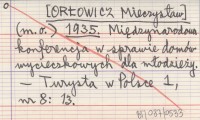 [ORŁOWICZ Mieczysław]
(m.o.) 1935. Międzynarodowa
konferencja w sprawie domów
wycieczkowych dla młodzieży.
– Turysta w Polsce 1,
nr 8: 13.